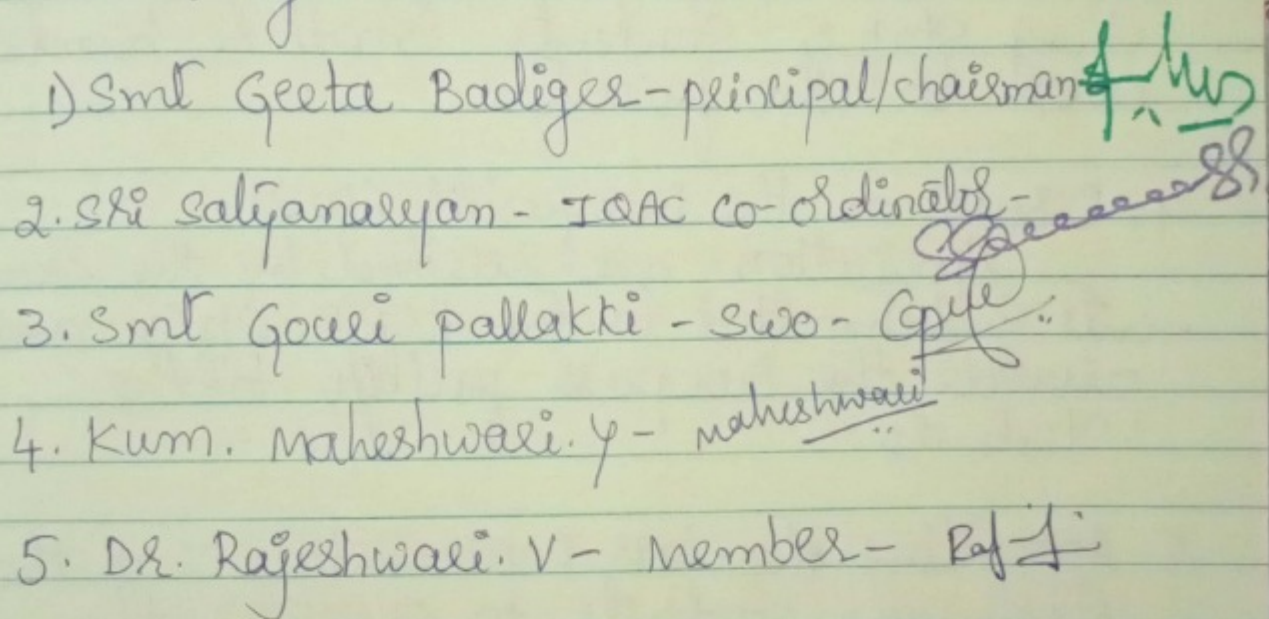 1) Smt Geeta Badiger - principal/chairman -
2. Sri Satyanarayan - IQAC co-ordinator -
3. Smt Gouri pallakki - SWO -
4. Kum. Maheshwari. Y - Maheshwari
5. Dr. Rajeshwari. V - Member - Raj